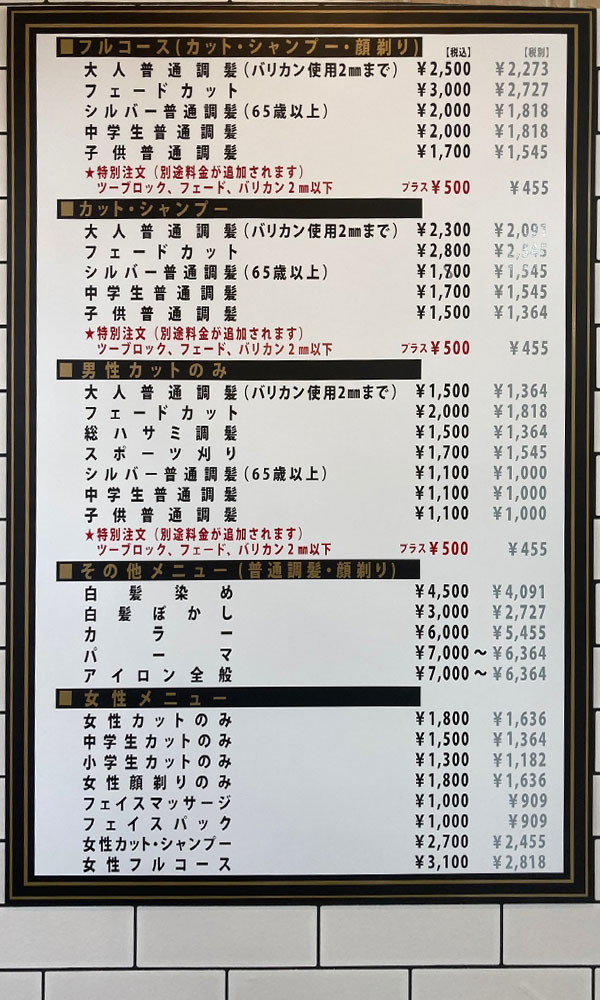 ■フルコース(カット・シャンプー・顔剃り) 【税込】 【税別】
大人普通調髪(バリカン使用2㎜まで) ¥2,500 ¥2,273
フェードカット ¥3,000 ¥2,727
シルバー普通調髪(65歳以上) ¥2,000 ¥1,818
中学生普通調髪 ¥2,000 ¥1,818
子供普通調髪 ¥1,700 ¥1,545
★特別注文(別途料金が追加されます)
ツーブロック、フェード、バリカン2㎜以下 プラス¥500 ¥455
■カット・シャンプー
大人普通調髪(バリカン使用2㎜まで) ¥2,300
フェードカット ¥2,800
シルバー普通調髪(65歳以上) ¥1,700 ¥1,545
中学生普通調髪 ¥1,700 ¥1,545
子供普通調髪 ¥1,500 ¥1,364
★特別注文(別途料金が追加されます)
ツーブロック、フェード、バリカン2㎜以下 プラス¥500 ¥455
■男性カットのみ
大人普通調髪(バリカン使用2㎜まで) ¥1,500 ¥1,364
フェードカット ¥2,000 ¥1,818
総ハサミ調髪 ¥1,500 ¥1,364
スポーツ刈り ¥1,700 ¥1,545
シルバー普通調髪(65歳以上) ¥1,100 ¥1,000
中学生普通調髪 ¥1,100 ¥1,000
子供普通調髪 ¥1,100 ¥1,000
★特別注文(別途料金が追加されます)
ツーブロック、フェード、バリカン2㎜以下 プラス¥500 ¥455
■その他メニュー(普通調髪・顔剃り)
白髪染め ¥4,500 ¥4,091
白髪ぼかし ¥3,000 ¥2,727
カラー ¥6,000 ¥5,455
パーマ ¥7,000～¥6,364
アイロン全般 ¥7,000～¥6,364
■女性メニュー
女性カットのみ ¥1,800 ¥1,636
中学生カットのみ ¥1,500 ¥1,364
小学生カットのみ ¥1,300 ¥1,182
女性顔剃りのみ ¥1,800 ¥1,636
フェイスマッサージ ¥1,000 ¥909
フェイスパック ¥1,000 ¥909
女性カット・シャンプー ¥2,700 ¥2,455
女性フルコース ¥3,100 ¥2,818